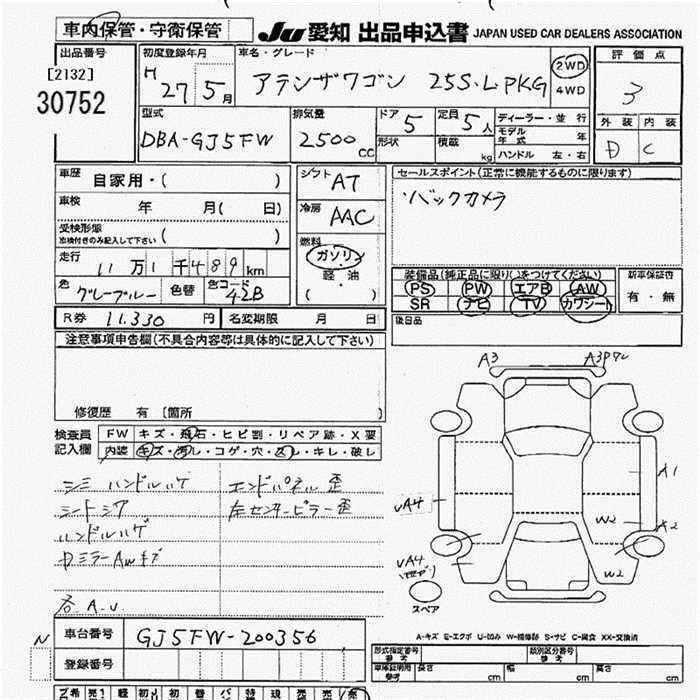 車内保管・守衛保管 JU 愛知 出品申込書 JAPAN USED CAR DEALERS ASSOCIATION
出品番号 初度登録年月 車名・グレード 2WD 評価点
[2132] H 27 5月 アテンザワゴン 25S・L PKG 4WD 3
30752
型式 排気量 ドア 5 定員 5人 ディーラー・並行 外装 内装
DBA-GJ5FW 2500cc 形状 積載 kg モデル年式 年 D C
ハンドル 左・右
車歴 自家用・( ) シフト AT セールスポイント(正常に機能するものに限ります)
車検 年 月( 日) 冷房 AAC ・バックカメラ
受検形態 ( )
車検付きのみ記入して下さい
燃料 ガソリン
走行 11万1千489km 軽・油 装備品(純正品に限り()をつけてください) 新車保証書
色 グレーブルー 色替 色コード 42B ( ) PS PW エアB AW 有・無
SR ナビ TV カワシート
R券 11,330円 名変期限 月 日 後日品
注意事項申告欄(不具合内容等は具体的に記入して下さい)
修復歴 有 〔箇所 〕
検査員 FW キズ・飛石・ヒビ割・リペア跡・X要
記入欄 内装 キズ・汚レ・コゲ・穴・スレ・キレ・破レ
シミ ハンドルハゲ エンドパネル歪
シートシワ 左センターピラー歪
ハンドルハゲ
各A.U
A3
A1
A2
W2
W2
UA4
UA4
スペア
N
車台番号 GJ5FW-200356
登録番号
A-キズ E-エクボ U-凹み W-補修跡 S-サビ C-腐食 XX-交換済
形式指定番号 参考 類別区分番号 参考
車庫証明用 参考 長さ cm 幅 cm 高さ cm